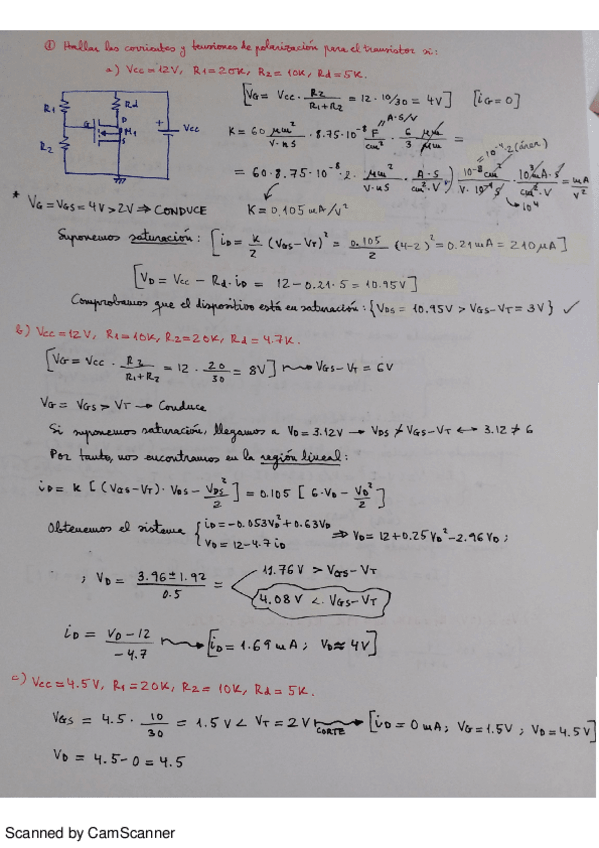 ① Hallar las corrientes y tensiones de polarización para el transistor si:
a) Vcc = 12V, R1 = 20K, R2 = 10K, Rd = 5K.
[VG = Vcc · R2/(R1+R2) = 12 · 10/30 = 4V] [iG = 0]
R1 Rd D G M1 S R2 + Vcc
K = 60 μm²/(V·ns) · 8.75·10⁻⁸ F/cm² · 6 μm/3 μm =
A·S/V
= 60 · 8.75·10⁻⁸ · 2 · μm²/(V·ns) · A·S/(cm²·V)
10⁻⁴·2 (área)
10⁻⁸cm²/(V·10⁻⁹S) · 10³mA·S/(cm²·V) = mA/V²
10⁴
* VG = VGS = 4V > 2V ⇒ CONDUCE K = 0.105 mA/V²
Suponemos saturación: [iD = K/2 (VGS-VT)² = 0.105/2 (4-2)² = 0.21mA = 210μA]
[VD = Vcc - Rd·iD = 12 - 0.21·5 = 10.95V]
Comprobamos que el dispositivo está en saturación: {VDS = 10.95V > VGS-VT = 3V} ✓
b) Vcc = 12V, R1 = 10K, R2 = 20K, Rd = 4.7K.
[VG = Vcc · R2/(R1+R2) = 12 · 20/30 = 8V] → VGS-VT = 6V
VG = VGS > VT → Conduce
Si suponemos saturación, llegamos a VD = 3.12V → VDS ≯ VGS-VT ↔ 3.12 ≯ 6
Por tanto, nos encontramos en la región lineal:
iD = K [(VGS-VT)·VDS - VDS²/2] = 0.105 [6·VD - VD²/2]
Obtenemos el sistema { iD = -0.053VD² + 0.63VD
VD = 12 - 4.7 iD ⇒ VD = 12 + 0.25VD² - 2.96VD;
; VD = (3.96 ± 1.92)/0.5 = 11.76V > VGS-VT
4.08V < VGS-VT
iD = (VD-12)/-4.7 → [iD = 1.69mA; VD ≈ 4V]
c) Vcc = 4.5V, R1 = 20K, R2 = 10K, Rd = 5K.
VGS = 4.5 · 10/30 = 1.5V < VT = 2V → CORTE [iD = 0mA; VG = 1.5V; VD = 4.5V]
VD = 4.5 - 0 = 4.5
Scanned by CamScanner